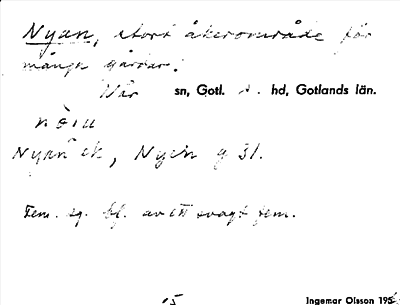 Nyan, stort åkerområde för
många gårdar.
När sn, Gotl. s. hd, Gotlands län.
Nyan ek, Nyen g 31.
Fem. sg. bf. av ett svagt fem.
15 Ingemar Olsson 195